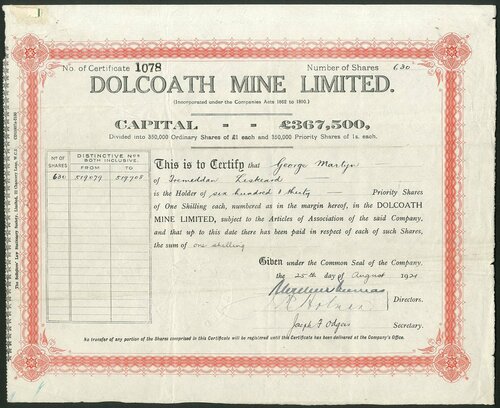 No. of Certificate 1078 Number of Shares 630
DOLCOATH MINE LIMITED.
(Incorporated under the Companies Acts 1862 to 1890.)
CAPITAL - - £367,500,
Divided into 350,000 Ordinary Shares of £1 each and 350,000 Priority Shares of 1s. each.
No OF SHARES
DISTINCTIVE Nos BOTH INCLUSIVE.
FROM TO
630 519079 519708
This is to Certify that George Martyn
of Tremeddan Liskeard
is the Holder of six hundred & thirty Priority Shares
of One Shilling each, numbered as in the margin hereof, in the DOLCOATH
MINE LIMITED, subject to the Articles of Association of the said Company,
and that up to this date there has been paid in respect of each of such Shares,
the sum of one shilling
Given under the Common Seal of the Company.
the 25th day of August 1921
Directors.
Joseph F Odgers Secretary.
No transfer of any portion of the Shares comprised in this Certificate will be registered until this Certificate has been delivered at the Company's Office.
The Solicitors' Law Stationery Society, Limited,